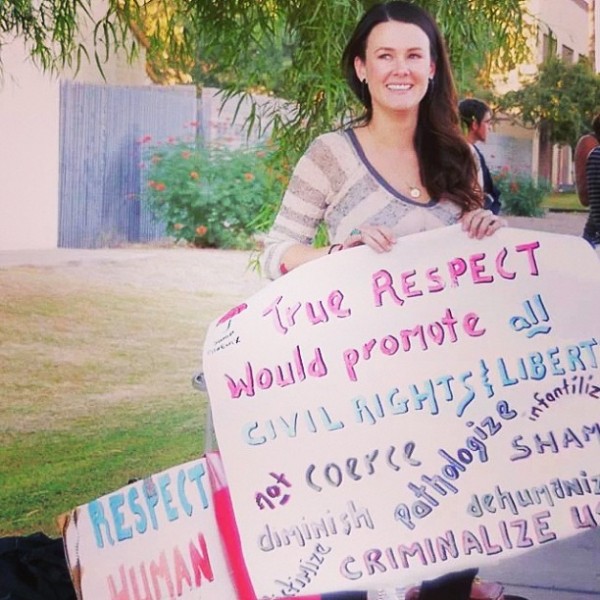 True RESPECT
Would promote all
CIVIL RIGHTS & LIBERT
not coerce
pathologize
infantiliz
SHAM
diminish
dehumaniz
CRIMINALIZE US
RESPECT
HUMAN